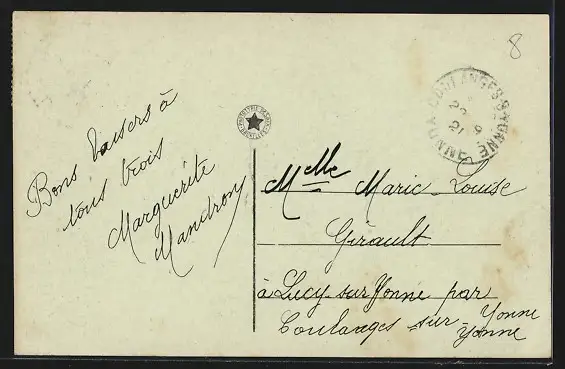 8
COULANGES-S-YONNE
YONNE
Bons baisers à
tous trois
Marguerite
Mandron
Melle Marie-Louise
Girault
à Lucy-sur-Yonne par
Coulanges-sur-Yonne
Yonne